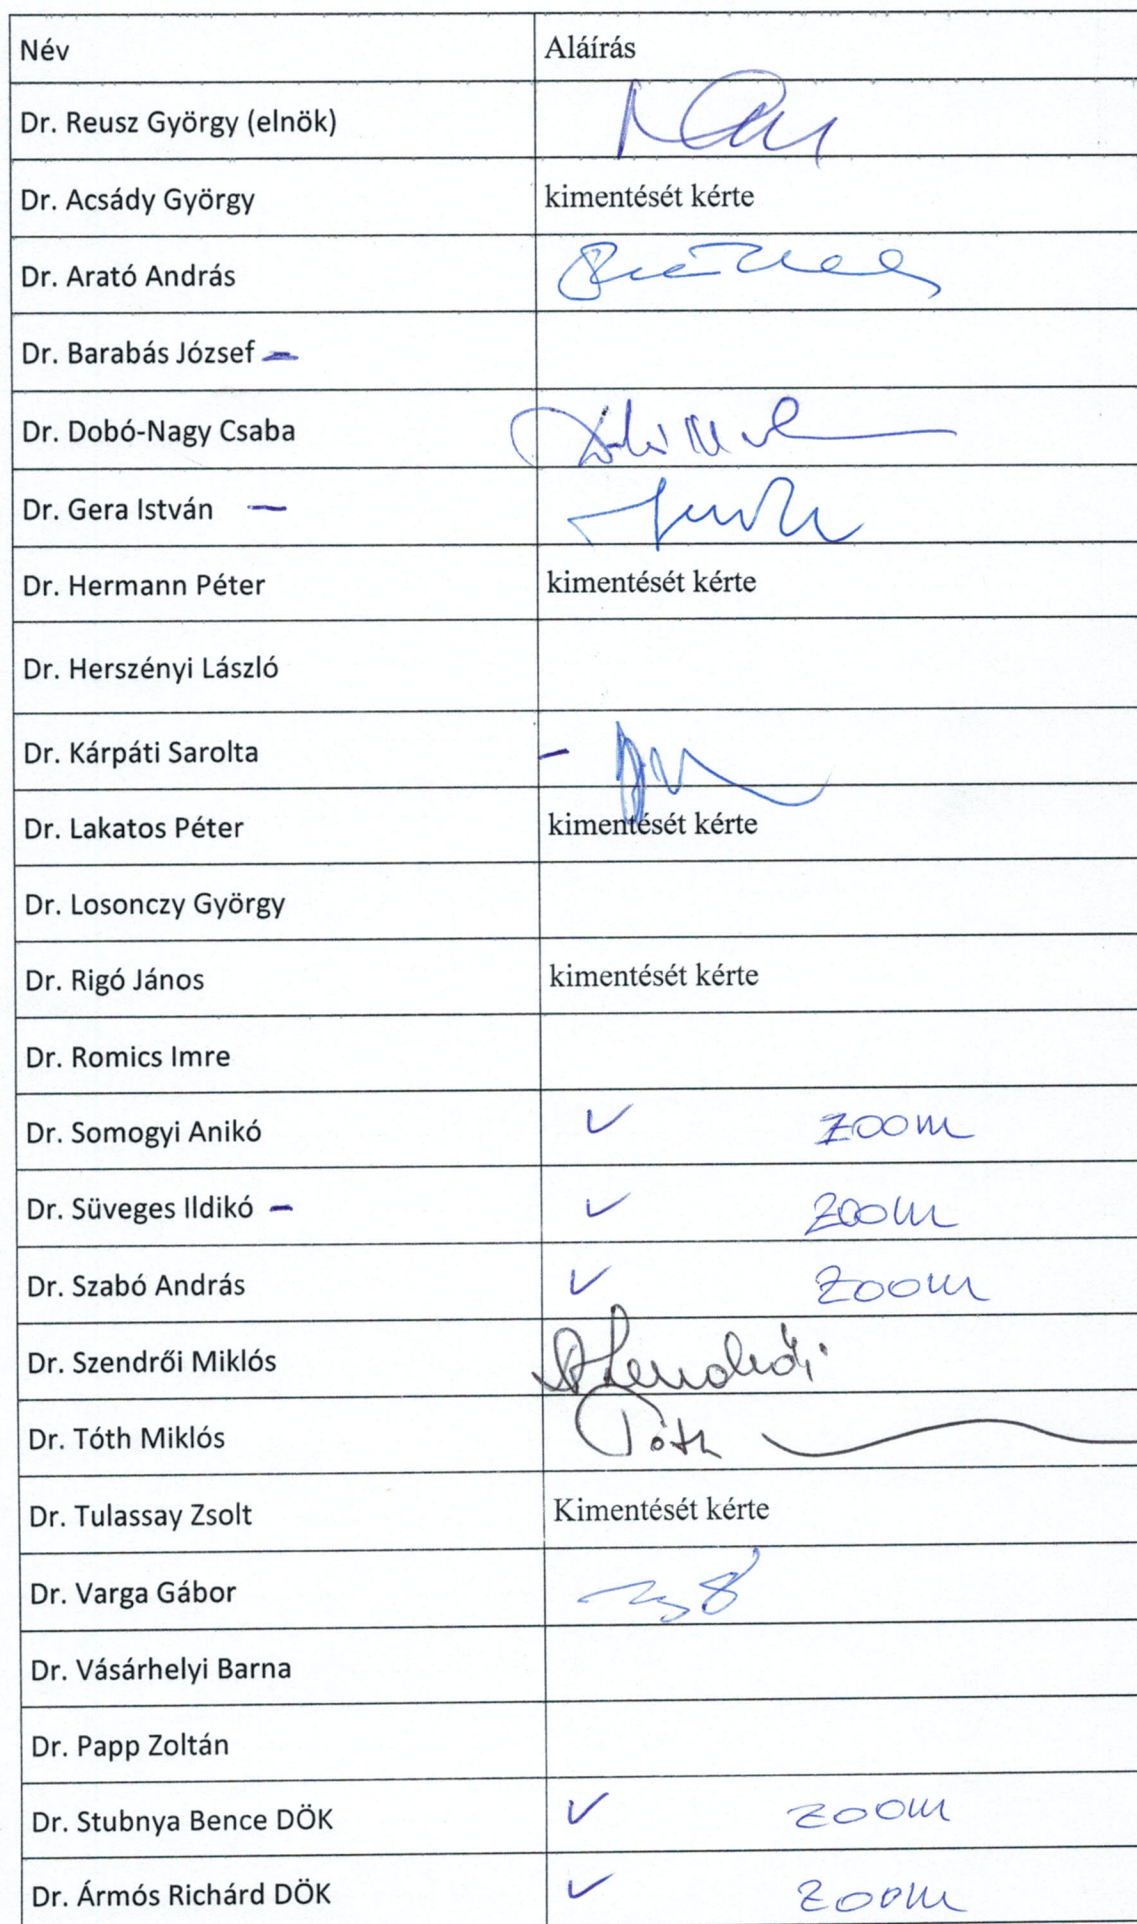 Név Aláírás
Dr. Reusz György (elnök)
Dr. Acsády György kimentését kérte
Dr. Arató András
Dr. Barabás József –
Dr. Dobó-Nagy Csaba
Dr. Gera István –
Dr. Hermann Péter kimentését kérte
Dr. Herszényi László
Dr. Kárpáti Sarolta –
Dr. Lakatos Péter kimentését kérte
Dr. Losonczy György
Dr. Rigó János kimentését kérte
Dr. Romics Imre
Dr. Somogyi Anikó ✓ zoom
Dr. Süveges Ildikó – ✓ zoom
Dr. Szabó András ✓ zoom
Dr. Szendrői Miklós Szendrői
Dr. Tóth Miklós Tóth
Dr. Tulassay Zsolt Kimentését kérte
Dr. Varga Gábor
Dr. Vásárhelyi Barna
Dr. Papp Zoltán
Dr. Stubnya Bence DÖK ✓ zoom
Dr. Ármós Richárd DÖK ✓ zoom